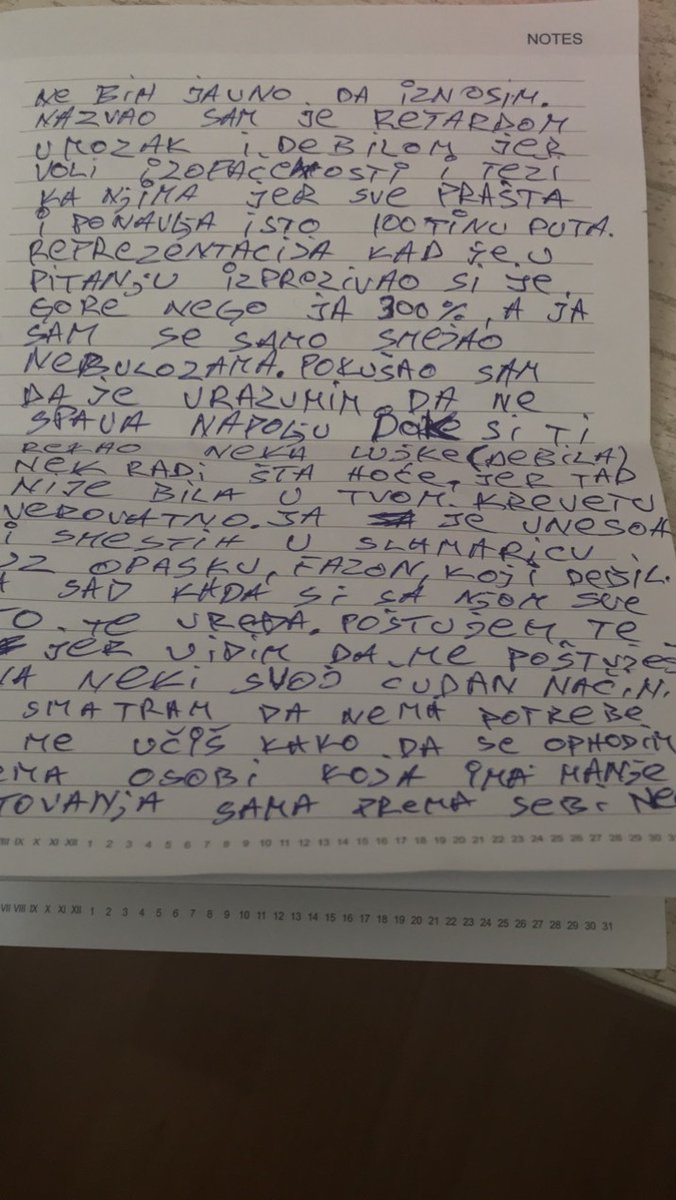 NOTES
NE BIH JAVNO DA IZNOSIM.
NAZVAO SAM JE RETARDOM
U MOZAK I DEBILOM JER
VOLI IZOPAČENOSTI I TEŽI
KA NJIMA JER SVE PRAŠTA
I PONAVLJA ISTO 100TINU PUTA.
REPREZENTACIJA KAD JE U
PITANJU IZPROZIVAO SI JE
GORE NEGO JA 300%, A JA
SAM SE SAMO SMEJAO
NEBULOZAMA. POKUŠAO SAM
DA JE URAZUMIM DA NE
SPAVA NAPOLJU DOK SI TI
REKAO NEKA LUŠKE (DEBILA)
NEK RADI ŠTA HOĆE, JER TAD
NIJE BILA U TVOM KREVETU
VEROVATNO. JA JE UNESOH
I SMESTIH U SLAMARICU
UZ OPASKU, FAZON, KOJI DEBIL.
A SAD KADA SI SA NJOM SVE
TO JE UVREDA. POŠTUJEM TE
JER VIDIM DA ME POŠTUJEŠ
NA NEKI SVOJ ČUDAN NAČIN.
SMATRAM DA NEMA POTREBE
ME UČIŠ KAKO DA SE OPHODIM
EMA OSOBI KOJA IMA MANJE
TOVANJA SAMA PREMA SEBI NE
VIII IX X XI XII 1 2 3 4 5 6 7 8 9 10 11 12 13 14 15 16 17 18 19 20 21 22 23 24 25 26 27 28 29 30 31
VII VIII IX X XI XII 1 2 3 4 5 6 7 8 9 10 11 12 13 14 15 16 17 18 19 20 21 22 23 24 25 26 27 28 29 30 31